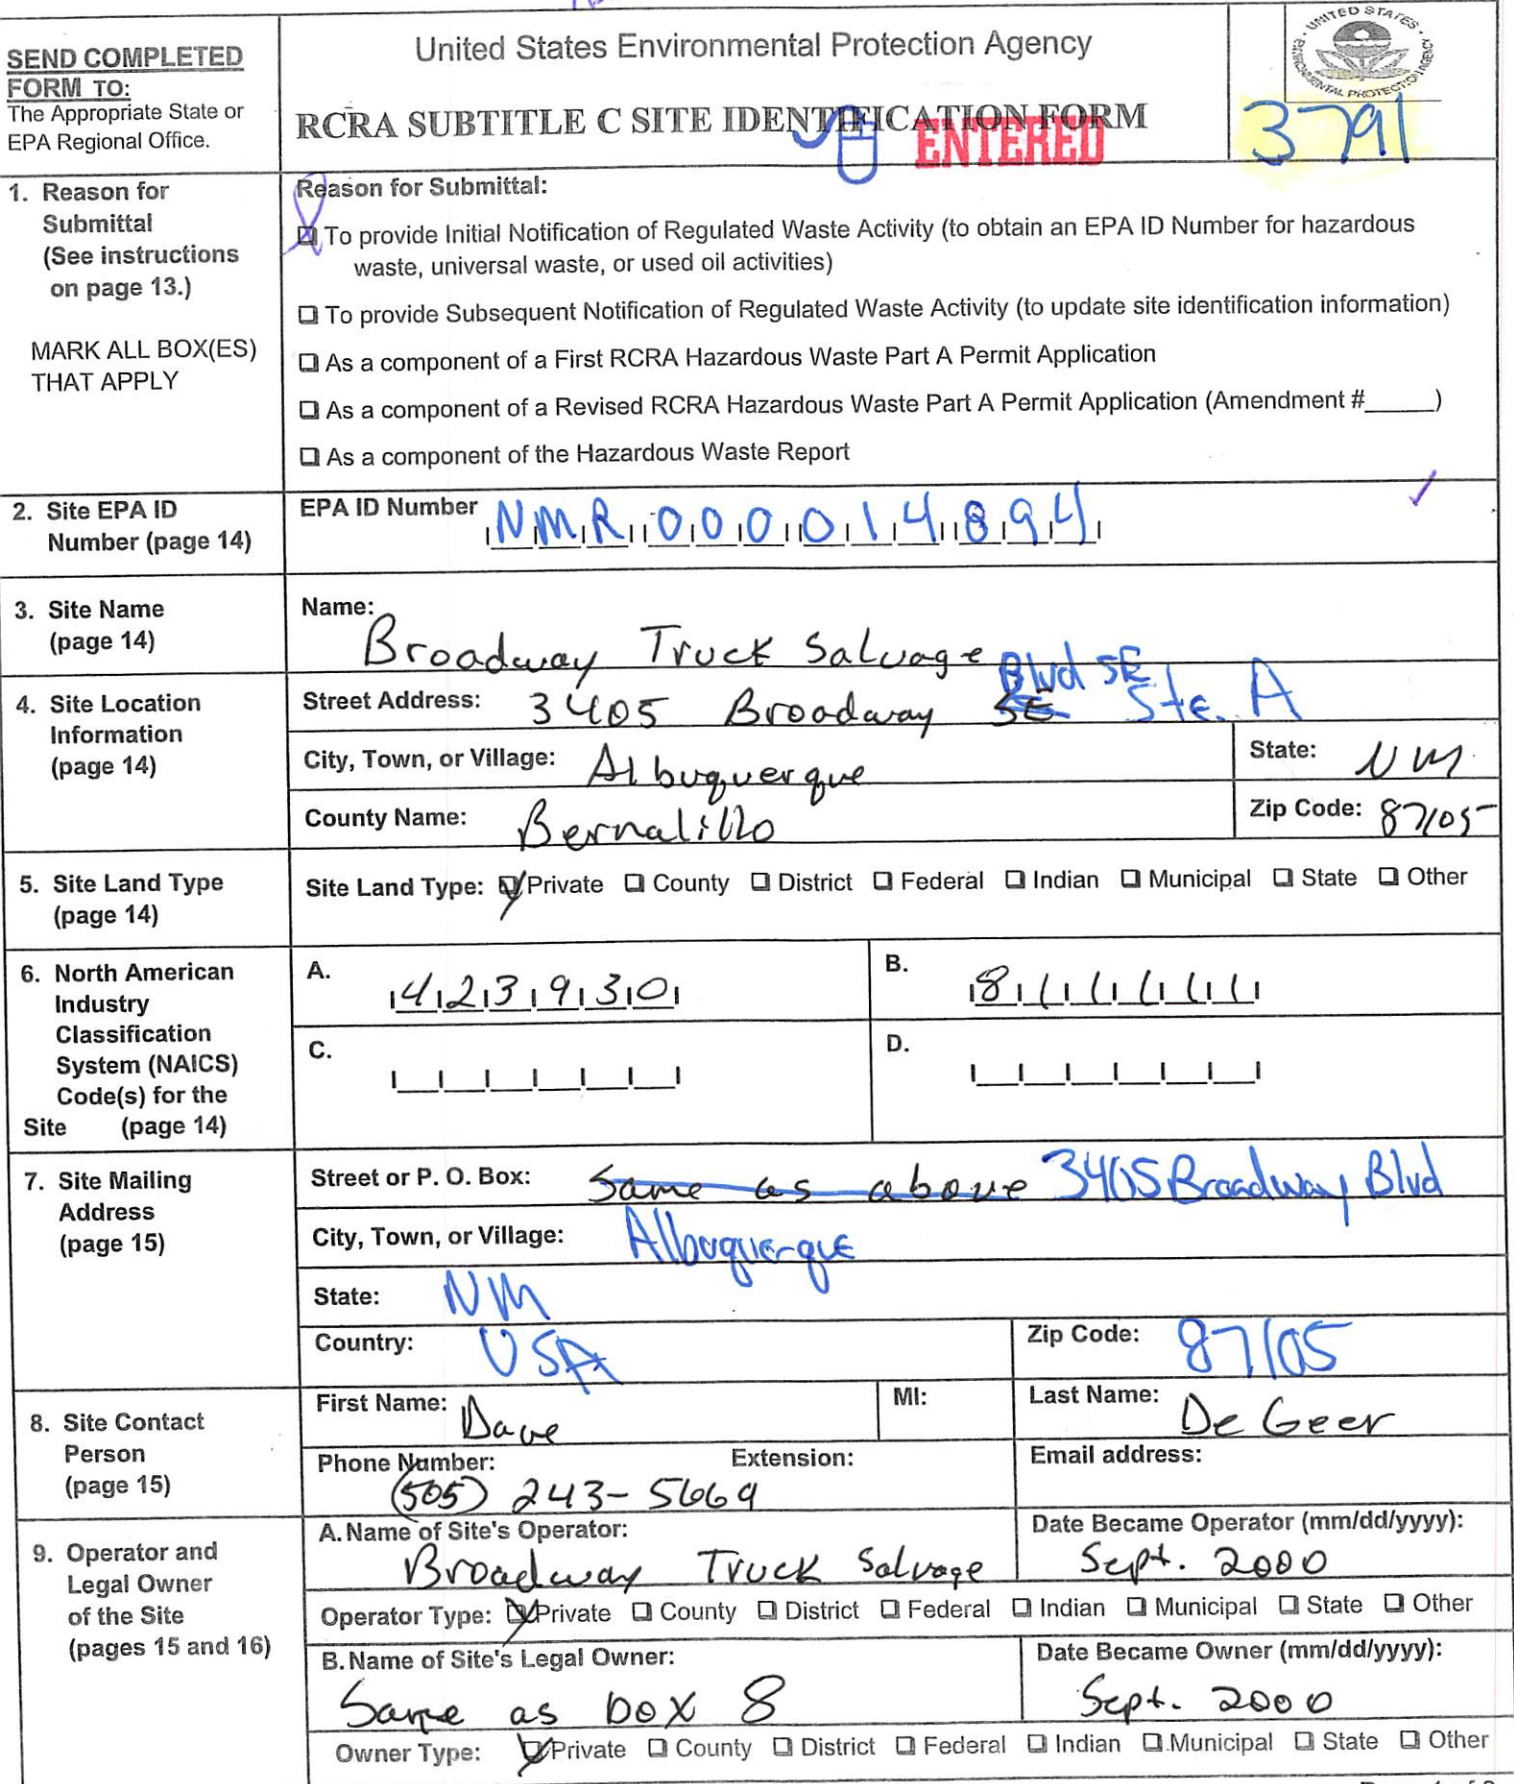 SEND COMPLETED
FORM TO:
The Appropriate State or
EPA Regional Office.
United States Environmental Protection Agency
RCRA SUBTITLE C SITE IDENTIFICATION FORM
ENTERED
UNITED STATES
ENVIRONMENTAL PROTECTION AGENCY
3791
1. Reason for
Submittal
(See instructions
on page 13.)
MARK ALL BOX(ES)
THAT APPLY
Reason for Submittal:
To provide Initial Notification of Regulated Waste Activity (to obtain an EPA ID Number for hazardous
waste, universal waste, or used oil activities)
❑ To provide Subsequent Notification of Regulated Waste Activity (to update site identification information)
❑ As a component of a First RCRA Hazardous Waste Part A Permit Application
❑ As a component of a Revised RCRA Hazardous Waste Part A Permit Application (Amendment #_____)
❑ As a component of the Hazardous Waste Report
2. Site EPA ID
Number (page 14)
EPA ID Number NMR000014894
3. Site Name
(page 14)
Name:
Broadway Truck Salvage
4. Site Location
Information
(page 14)
Street Address: 3405 Broadway SE Blvd SE Ste. A
City, Town, or Village: Albuquerque
State: NM
County Name: Bernalillo
Zip Code: 87105
5. Site Land Type
(page 14)
Site Land Type: Private ❑ County ❑ District ❑ Federal ❑ Indian ❑ Municipal ❑ State ❑ Other
6. North American
Industry
Classification
System (NAICS)
Code(s) for the
Site (page 14)
A. 423930
B. 811111
C.
D.
7. Site Mailing
Address
(page 15)
Street or P. O. Box: Same as above 3405 Broadway Blvd
City, Town, or Village: Albuquerque
State: NM
Country: USA
Zip Code: 87105
8. Site Contact
Person
(page 15)
First Name: Dave
MI:
Last Name: De Geer
Phone Number: Extension:
(505) 243-5669
Email address:
9. Operator and
Legal Owner
of the Site
(pages 15 and 16)
A. Name of Site's Operator:
Broadway Truck Salvage
Date Became Operator (mm/dd/yyyy):
Sept. 2000
Operator Type: Private ❑ County ❑ District ❑ Federal ❑ Indian ❑ Municipal ❑ State ❑ Other
B. Name of Site's Legal Owner:
Same as box 8
Date Became Owner (mm/dd/yyyy):
Sept. 2000
Owner Type: Private ❑ County ❑ District ❑ Federal ❑ Indian ❑ Municipal ❑ State ❑ Other